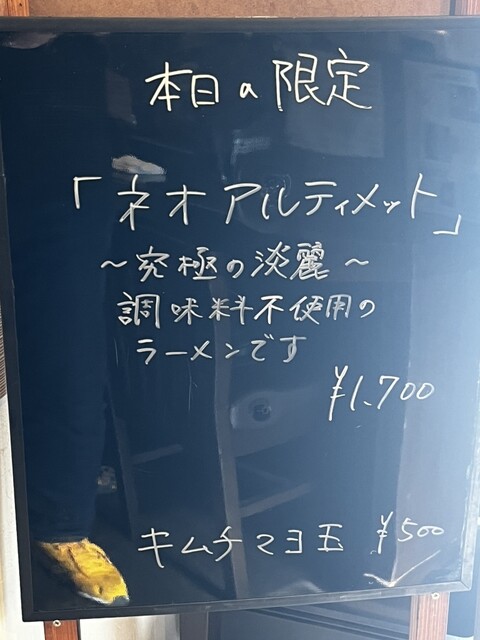 本日の限定
「ネオ アルティメット」
～究極の淡麗～
調味料不使用の
ラーメンです
¥1,700
キムチマヨ玉 ¥500